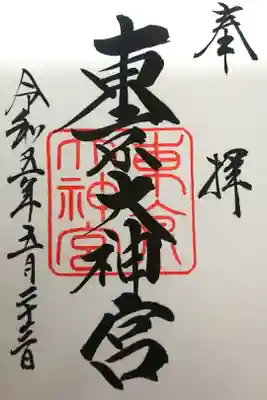 奉拝
東京大神宮
東京大神宮
令和五年五月二十三日